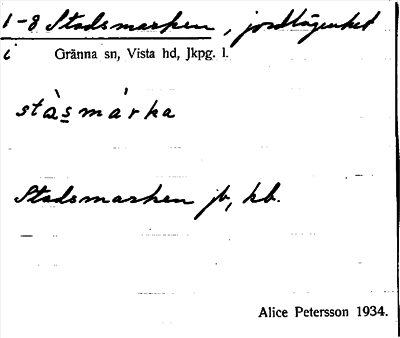 1-8 Stadsmarken, jordlägenhet
i Gränna sn, Vista hd, Jkpg. l.
stàsmárka
Stadsmarken jb, kb.
Alice Petersson 1934.